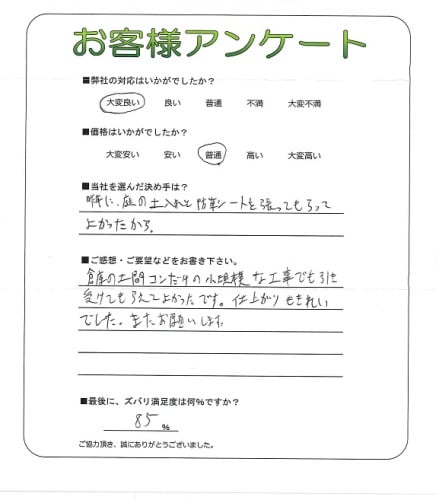 お客様アンケート
■弊社の対応はいかがでしたか？
大変良い 良い 普通 不満 大変不満
■価格はいかがでしたか？
大変安い 安い 普通 高い 大変高い
■当社を選んだ決め手は？
昨年に、庭の土入れと防草シートを張ってもらって
よかったから。
■ご感想・ご要望などをお書き下さい。
倉庫の土間コンだけの小規模な工事でも引き
受けてもらえてよかったです。仕上がりもきれい
でした。またお願いします
■最後に、ズバリ満足度は何％ですか？
85 %
ご協力頂き、誠にありがとうございました。